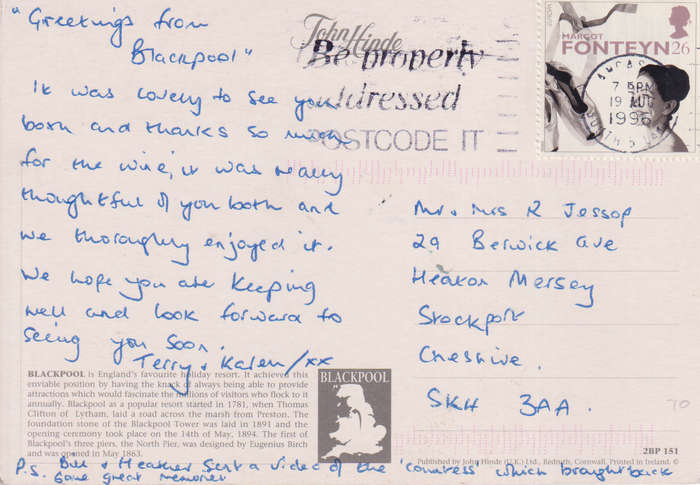 "Greetings from
Blackpool"
It was lovely to see you
both and thanks so much
for the wine, it was really
thoughtful of you both and
we thoroughly enjoyed it.
We hope you are keeping
well and look forward to
seeing you soon.
Terry & Karen/xx
BLACKPOOL is England's favourite holiday resort. It achieved this
enviable position by having the knack of always being able to provide
attractions which would fascinate the millions of visitors who flock to it
annually. Blackpool as a popular resort started in 1781, when Thomas
Clifton of Lytham, laid a road across the marsh from Preston. The
foundation stone of the Blackpool Tower was laid in 1891 and the
opening ceremony took place on the 14th of May, 1894. The first of
Blackpool's three piers, the North Pier, was designed by Eugenius Birch
and was opened in May 1863.
BLACKPOOL
P.S. Bill & Heather sent a video of the 'countess' which brought back
some great memories
John Hinde
Be properly
addressed
POSTCODE IT
EUROPA
MARGOT
FONTEYN 26
7 PM
19 AUG
1996
Mr. Mrs R Jessop
29 Berwick Ave
Heaton Mersey
Stockport
Cheshire.
SK4 3AA.
70
2BP 151
Published by John Hinde (U.K.) Ltd., Redruth, Cornwall. Printed in Ireland. ©